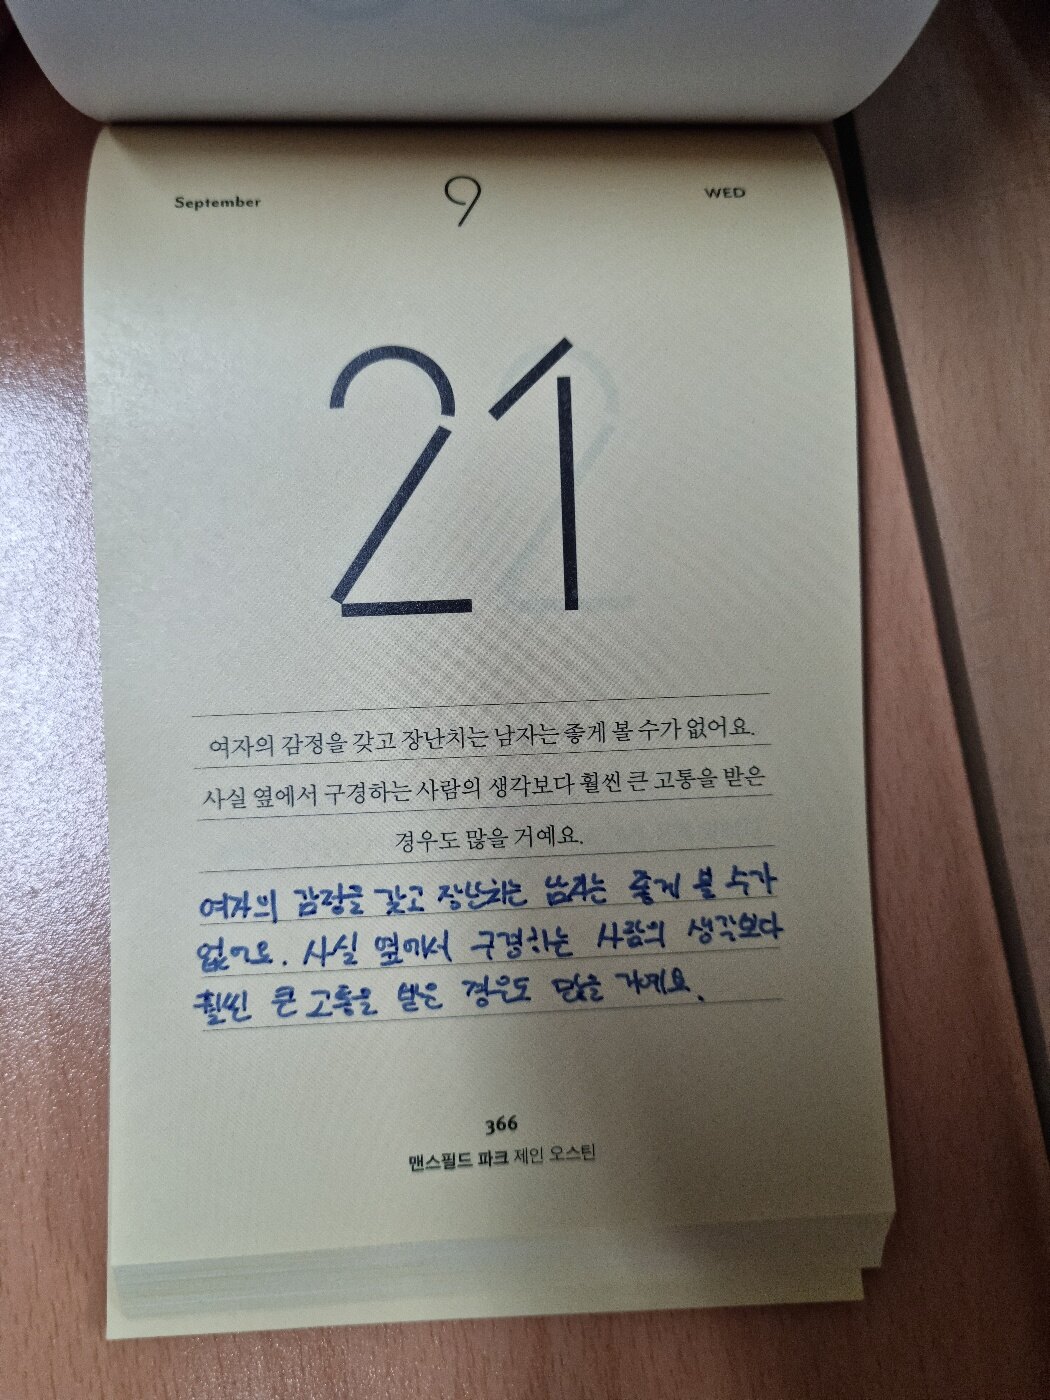 September 9 WED
21
여자의 감정을 갖고 장난치는 남자는 좋게 볼 수가 없어요.
사실 옆에서 구경하는 사람의 생각보다 훨씬 큰 고통을 받은
경우도 많을 거예요.
여자의 감정을 갖고 장난치는 남자는 좋게 볼 수가
없어요. 사실 옆에서 구경하는 사람의 생각보다
훨씬 큰 고통을 받은 경우도 많을 거예요.
366
맨스필드 파크 제인 오스틴